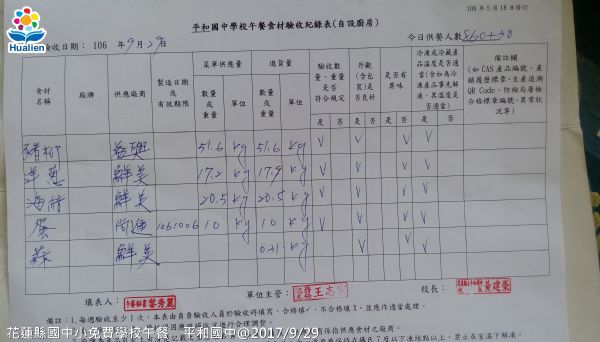 Hualien
106 年 5 月 18 日修訂
平和國中學校午餐食材驗收紀錄表(自設廚房)
驗收日期： 106 年 9 月 29 日
今日供餐人數 860+30
食材名稱 廠牌 供應廠商 製造日期或有效期限 菜單供應量 進貨量 驗收數量、重量是否符合規定 外觀(含包裝)是否良好 是否有異味 冷凍或冷藏產品溫度是否適當(含如為冷凍產品事先解凍，其溫度是否適當) 備註欄(如 CAS 產品編號，產銷履歷標章，生產追溯 QR Code，防檢局屠檢合格標章編號，異常狀況等)
數量或重量 單位 數量或重量 單位
是 否 是 否 是 否 是 否
豬柳 51.6 kg 51.6 kg V V V V
洋蔥 鮮美 17.2 kg 17.9 kg V V V V
鮮美 20.5 kg 20.5 kg V V V V
蛋 1061006 10 kg 10 kg V V V V
蒜 鮮美 0.31 kg V V V
填表人： 午餐秘書
單位主管： 王志
校長： 黃建榮
備註：1. 每週驗收至少 1 次，本表由負責驗收人員於驗收時填寫，合格填✓，不合格填 X，並應作適當處理。
花蓮縣國中小免費學校午餐 平和國中@2017/9/29